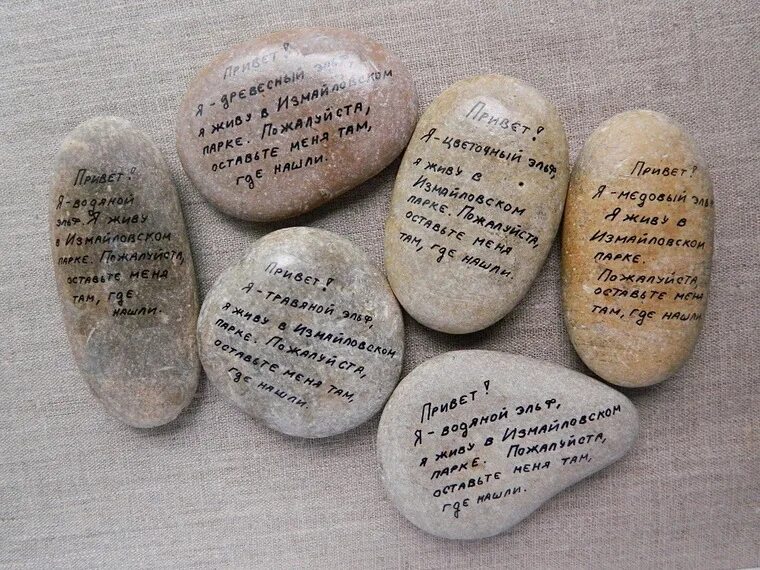 Привет!
Я-древесный эльф,
я живу в Измайловском
парке. Пожалуйста,
оставьте меня там,
где нашли.
Привет!
Я-цветочный эльф,
я живу в
Измайловском
парке. Пожалуйста,
оставьте меня
там, где нашли.
Привет!
Я-медовый эльф
Я живу в
Измайловском
парке.
Пожалуйста
оставьте меня
там, где нашли
Привет!
Я-водяной
эльф. Я живу
в Измайловском
парке. Пожалуйста,
оставьте меня
там, где
нашли.
Привет!
Я-травяной эльф,
я живу в Измайловском
парке. Пожалуйста,
оставьте меня там,
где нашли.
Привет!
Я-водяной эльф,
я живу в Измайловском
парке. Пожалуйста,
оставьте меня там,
где нашли.